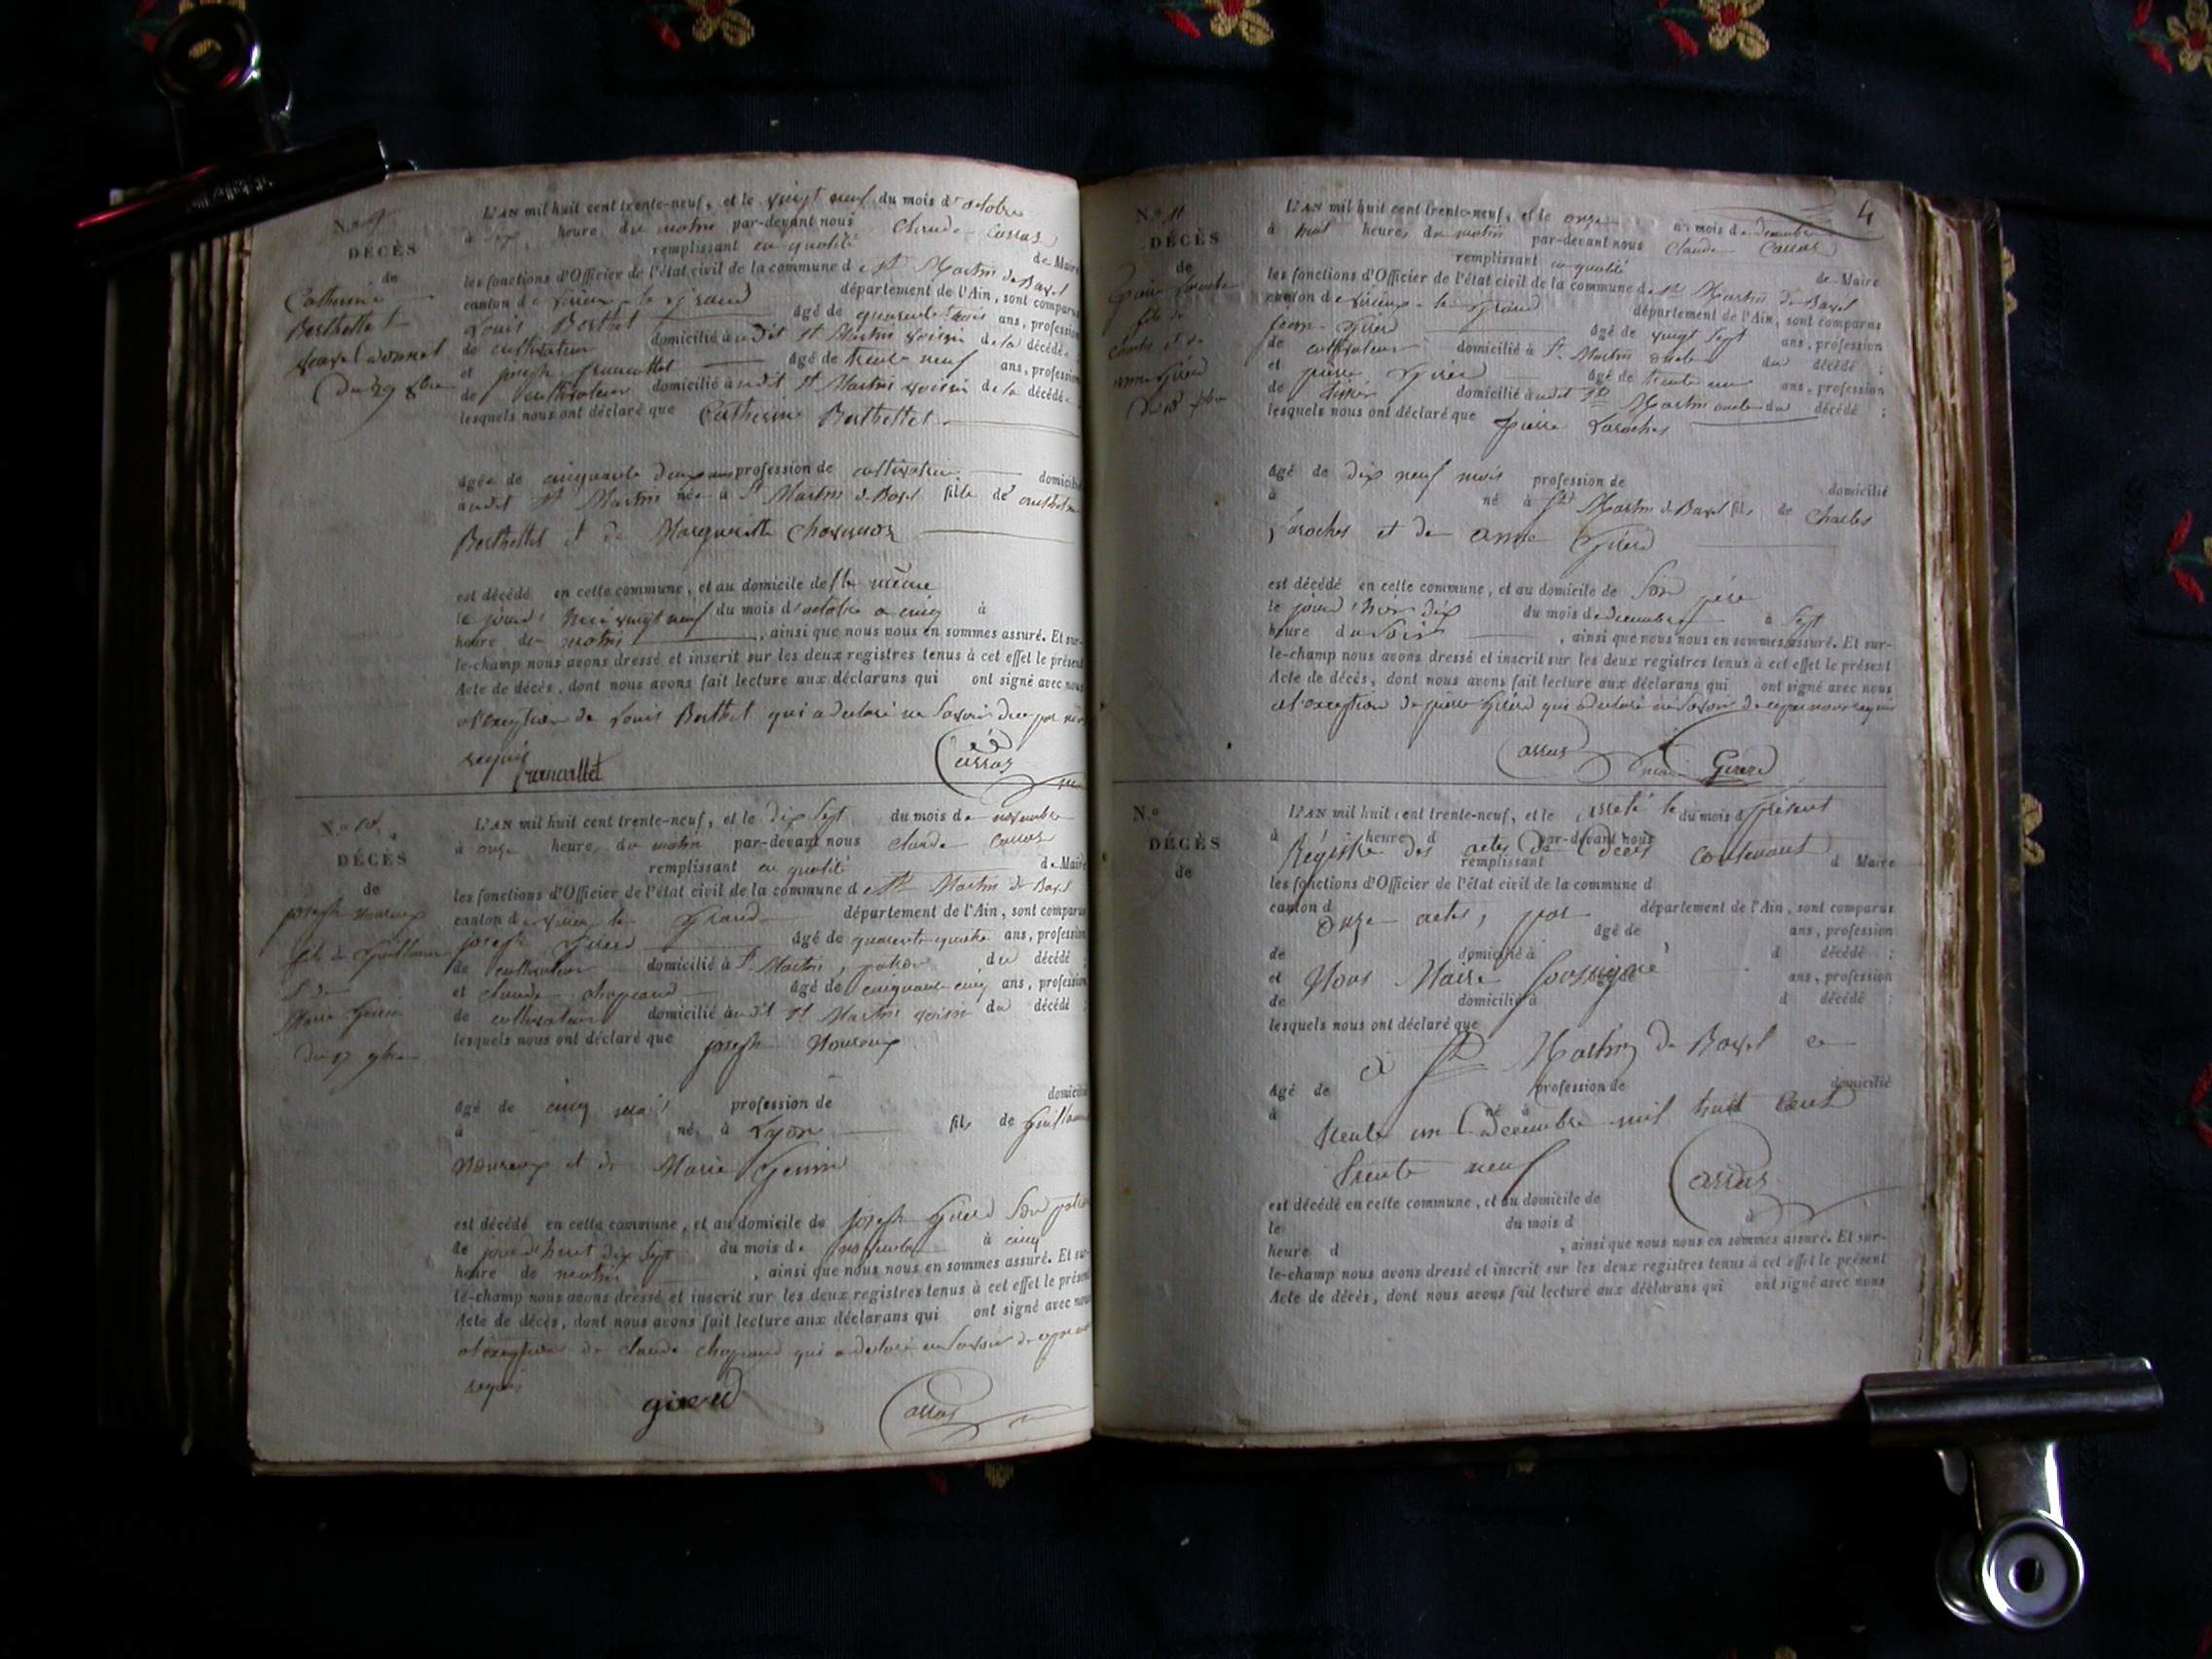 N.º 9
DÉCÈS
de
Catherine
Berthellet
du 29 8bre
L'AN mil huit cent trente-neuf, et le vingt neuf du mois d'octobre
à heure du matin par-devant nous Claude Carras
remplissant en qualité de Maire
les fonctions d'Officier de l'état civil de la commune de St Martin de Bavel
canton de Virieux le grand département de l'Ain, sont comparus
Louis Berthet âgé de quarante trois ans, profession
de cultivateur domicilié audit St Martin voisin de la décédée
et joseph francillet âgé de trente neuf ans, profession
de cultivateur domicilié audit St Martin voisin de la décédée
lesquels nous ont déclaré que Catherine Berthellet
âgée de cinquante deux ans profession de cultivatrice domicilié
audit St Martin née à St Martin de Bavel fille de anthelme
Berthellet et de Marguerite
est décédé en cette commune, et au domicile de
le jourd'hui vingt neuf du mois d'octobre a cinq à
heure du matin, ainsi que nous nous en sommes assuré. Et sur-
le-champ nous avons dressé et inscrit sur les deux registres tenus à cet effet le présent
Acte de décès, dont nous avons fait lecture aux déclarans qui ont signé avec nous
a l'exception de Louis Berthet qui a déclaré ne savoir de ce par nous
requis
francillet Carras
N.º 10
DÉCÈS
de
joseph
fils de Guillaume
et de
Marie Genin
du 17 9bre
L'AN mil huit cent trente-neuf, et le dix sept du mois de novembre
à onze heure, du matin par-devant nous Claude Carras
remplissant en qualité de Maire
les fonctions d'Officier de l'état civil de la commune de St Martin de Bavel
canton de Virieu le Grand département de l'Ain, sont comparus
joseph Girerd âgé de quarante quatre ans, profession
de cultivateur domicilié à St Martin, du décédé ;
et claude chapuand âgé de cinquante cinq ans, profession
de cultivateur domicilié audit St Martin voisin du décédé ;
lesquels nous ont déclaré que joseph
âgé de cinq mois profession de domicilié
à né à Lyon fils de Guillaume
et de Marie Genin
est décédé en cette commune, et au domicile de joseph Girerd son
le jourd'huit dix sept du mois de novembre à cinq
heure de matin, ainsi que nous nous en sommes assuré. Et sur-
le-champ nous avons dressé et inscrit sur les deux registres tenus à cet effet le présent
Acte de décès, dont nous avons fait lecture aux déclarans qui ont signé avec nous
a l'exception de claude chapuand qui a déclaré ne savoir de ce par nous
requis
girerd Carras
4
N.º 11
DÉCÈS
de
pierre Laroche
fils de
charles et de
anne Girerd
L'AN mil huit cent trente-neuf, et le onze du mois de décembre
à huit heures du matin par-devant nous Claude Carras
remplissant en qualité de Maire
les fonctions d'Officier de l'état civil de la commune de St Martin de Bavel
canton de Virieux le Grand département de l'Ain, sont comparus
jean Girerd âgé de vingt sept ans, profession
de cultivateur domicilié à St Martin oncle du décédé ;
et pierre Girerd âgé de trente ans, profession
de domicilié audit St Martin oncle du décédé ;
lesquels nous ont déclaré que pierre Laroches
âgé de dix neuf mois profession de domicilié
à né à St Martin de Bavel fils de Charles
Laroches et de anne Girerd
est décédé en cette commune, et au domicile de son père
le jourd'hier dix du mois de décembre à sept
heure du soir, ainsi que nous nous en sommes assuré. Et sur-
le-champ nous avons dressé et inscrit sur les deux registres tenus à cet effet le présent
Acte de décès, dont nous avons fait lecture aux déclarans qui ont signé avec nous
a l'exception de pierre Girerd qui a déclaré ne savoir de ce par nous requis
Carras maire Girerd
N.º
DÉCÈS
de
L'AN mil huit cent trente-neuf, et le arreté le du mois d présent
à heure d par-devant nous
Régistre des actes de Décès contenant
remplissant d Maire
les fonctions d'Officier de l'état civil de la commune d
canton d département de l'Ain, sont comparus
onze actes, par
âgé de ans, profession
de domicilié à d décédé ;
et Nous Maire soussigné ans, profession
de domicilié à d décédé ;
lesquels nous ont déclaré que
a St Martin de Bavel ce
âgé de profession de domicilié
à né à
trente un Décembre mil huit cent
trente neuf Carras
est décédé en cette commune, et au domicile de
le du mois d à
heure d , ainsi que nous nous en sommes assuré. Et sur-
le-champ nous avons dressé et inscrit sur les deux registres tenus à cet effet le présent
Acte de décès, dont nous avons fait lecture aux déclarans qui ont signé avec nous